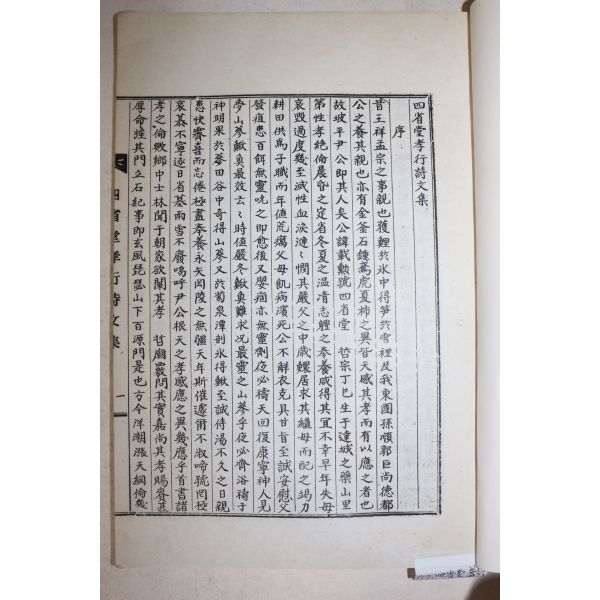 四省堂孝行詩文集
序
昔王祥孟宗之事親也獲鯉於氷中得笋於雪裡及我東國孫順郭巨尚德都
公之養其親也亦有金釜石鍾薦虎夏柿之異皆天感其孝而有以應之者也
故坡平尹公即其人矣公諱載勲號四省堂 哲宗丁巳生于達城之藥山里
第性孝絶倫晨昏之定省冬夏之溫凊志軆之奉養咸得其宜不幸早年失母
哀毀過度幾至滅性血淚漣漣憫其嚴父之中歲鰥居求其繼母而配之竭力
耕田供爲子職而年値荒癘父母飢病濱死公不解衣克具甘旨至誠安慰父
發疽患百餌無靈吮之即愈後又嬰痼亦無靈劑夜必禱天回復康寧神人見
夢山蔘鰍奠最效云云時値嚴冬鰍奠難求况最靈之山蔘乎夜必齊浴禱于
神明果於蔘田谷中奇得山蔘又於菊泉潭剖氷得鰍至誠侍湯不久之日親
患快霽喜而忘倦極盡奉養永矢罔陵之無疆天年斯催遽爾不淑啼號罔極
哀慕不寧逐日省墓雨雪不廢嗚呼尹公根天之孝感應之異幾應乎首書諸
孝之倫敟鄕中士林聞于朝家欲闡其孝 哲廟覈問其實嘉尚其孝賜賚甚
厚命旌其門立石紀事即玄風琵瑟山下百源門是也方今洋潮漲天綱倫幾
四省堂孝行詩文集
一